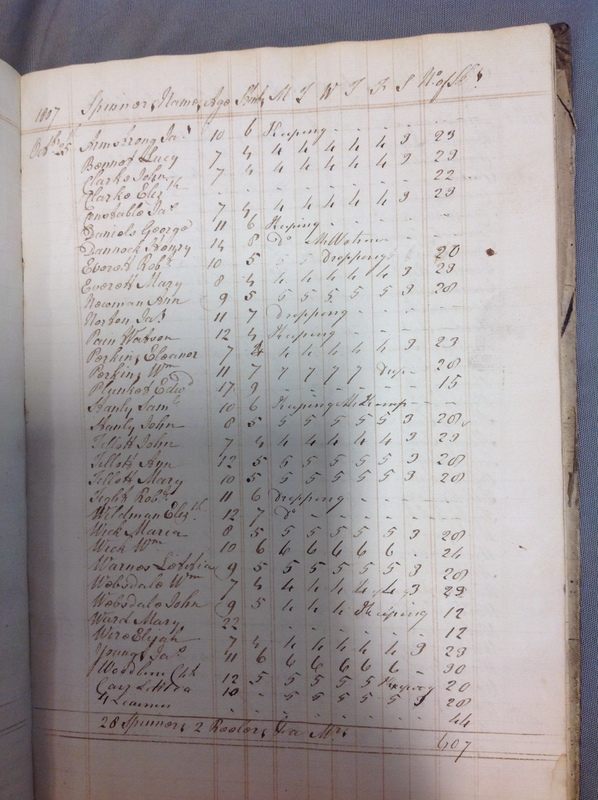 1807 Spinners Names Age Stint M T W T F S No of Sks
Octbr 25 Armstrong Jas 10 6 Keeping - - - -
Bennet Lucy 7 4 4 4 4 4 4 3 23
Clarke John 7 4 4 4 4 4 4 3 23
Clarke Elizth - - - - - - 22
Constable Jas 7 4 4 4 4 4 4 3 23
Daniels George 11 6 Keeping - - - -
Dannock Henry 14 8 Do - -
Everett Robt 10 5 5 5 Dropping 20
Everett Mary 8 4 4 4 4 4 4 3 23
Newman Ann 9 5 5 5 5 5 5 3 28
Norton Jas 11 7 Dropping - - - -
Pain Watson 12 4 Keeping - - - -
Perkins Eleanor 7 4 4 4 4 4 4 3 23
Perkins Wm 11 7 7 7 7 7 - 28
Plunket Edwd 17 9 - - - - - 15
Stanly Saml 10 6 Keeping - -
Stanly John 8 5 5 5 5 5 5 3 28
Tillott John 7 4 4 4 4 4 4 3 23
Tillott Ann 12 5 5 5 5 5 5 3 28
Tillott Mary 10 5 5 5 5 5 5 3 28
Tight Robt 11 6 Dropping - - - -
Wildman Elizth 12 7 Do - - - -
Wick Maria 8 5 5 5 5 5 5 3 28
Wick Wm 10 6 6 6 6 6 6 . 24
Warnes Letitia 9 5 5 5 5 5 5 3 28
Websdale Wm 7 4 4 4 4 4 4 3 23
Websdale John 9 5 4 4 4 Keeping 12
Ward Mary 22 - - - - - - 12
Were Elijah 7 4 4 4 4 4 4 3 23
Youngs Jas 11 6 6 6 6 6 6 - 30
12 5 5 5 5 5 Keeping 20
Cay Letitia 10 - 5 5 5 5 5 3 28
4 Learners - - - - - - 44
28 Spinners 2 Reelers
607